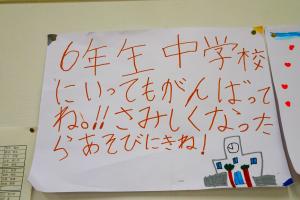 6年生 中学校
にいってもがんばって
ね。!!さみしくなった
らあそびにきね!